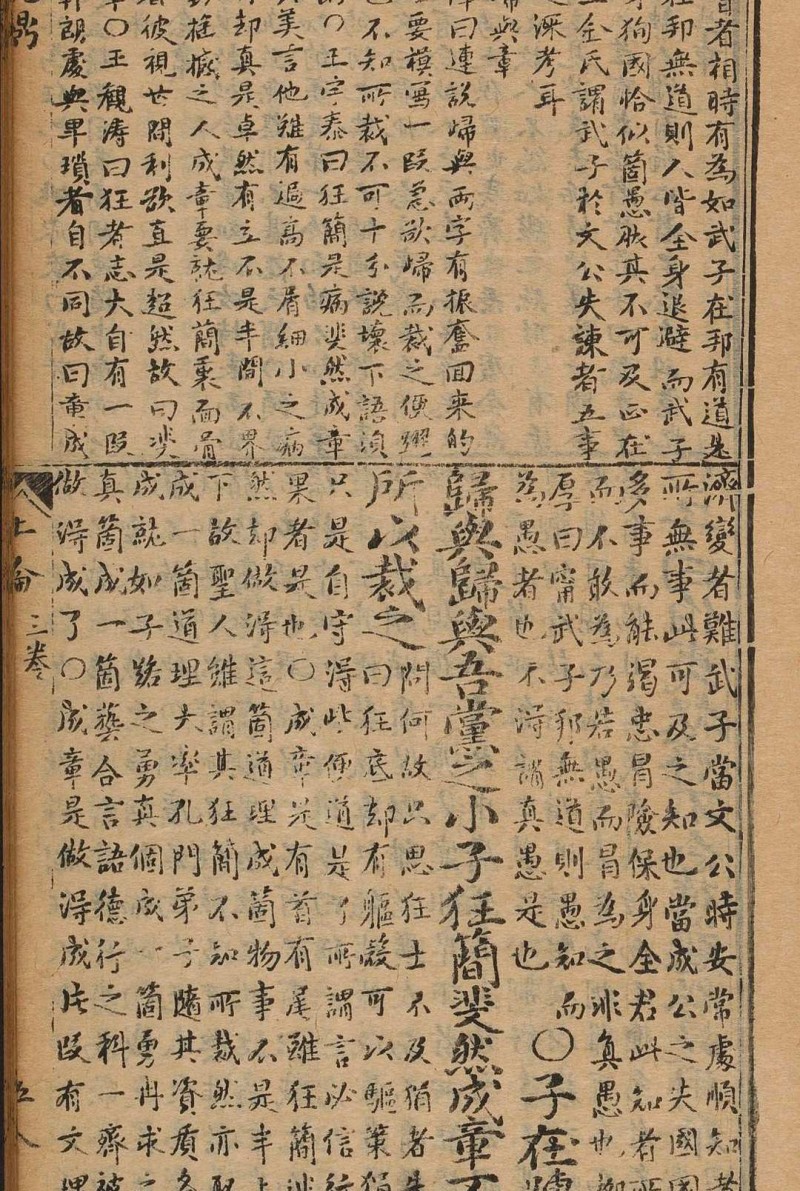 者相時有為如武子在邦有道是
在邦無道則人皆全身退避而武子
狥國恰似箇愚朕其不可及正在
金氏謂武子於文公失諫者五事
深考耳
歸與章
曰連說歸與兩字有振奮回來的
要模寫一段急欲歸而裁之便
也不知所裁不可十分說壞下語須
○王宇泰曰狂簡是病斐然成章
美言他雖有過高不屑細小之病
却真是卓然有立不是半間不界
之人成章要就狂簡裏面骨
彼視世間利欲直是超然故曰斐
○王觀濤曰狂者志大自有一段
朗處與卑瑣者自不同故曰章成
濟變者難武子當文公時安常處順知者
所無事此可及之知也當成公之失國
多事而能竭忠冒險保身全君此知者所
而不敢為乃若愚而冒為之非真愚也
厚曰甯武子邦無道則愚知而
為愚者也不得謂真愚是也
○子在陳
歸與歸與吾黨之小子狂簡斐然成章不
所以裁之
問何故只思狂士不及狷者
曰狂底却有軀殼可以驅策狷
只是自守得些便道是了所謂言必信行
果者是也○成章是有首有尾雖狂簡
然却做得這箇道理成箇物事不是半上
下故聖人雖謂其狂簡不知所裁然亦
成一箇道理大率孔門弟子隨其資質各
成就如子路之勇真個成一箇勇冉求之
真箇成一箇藝合言語德行之科一齊被
做得成了○成章是做得成片段有文理
上論
三卷